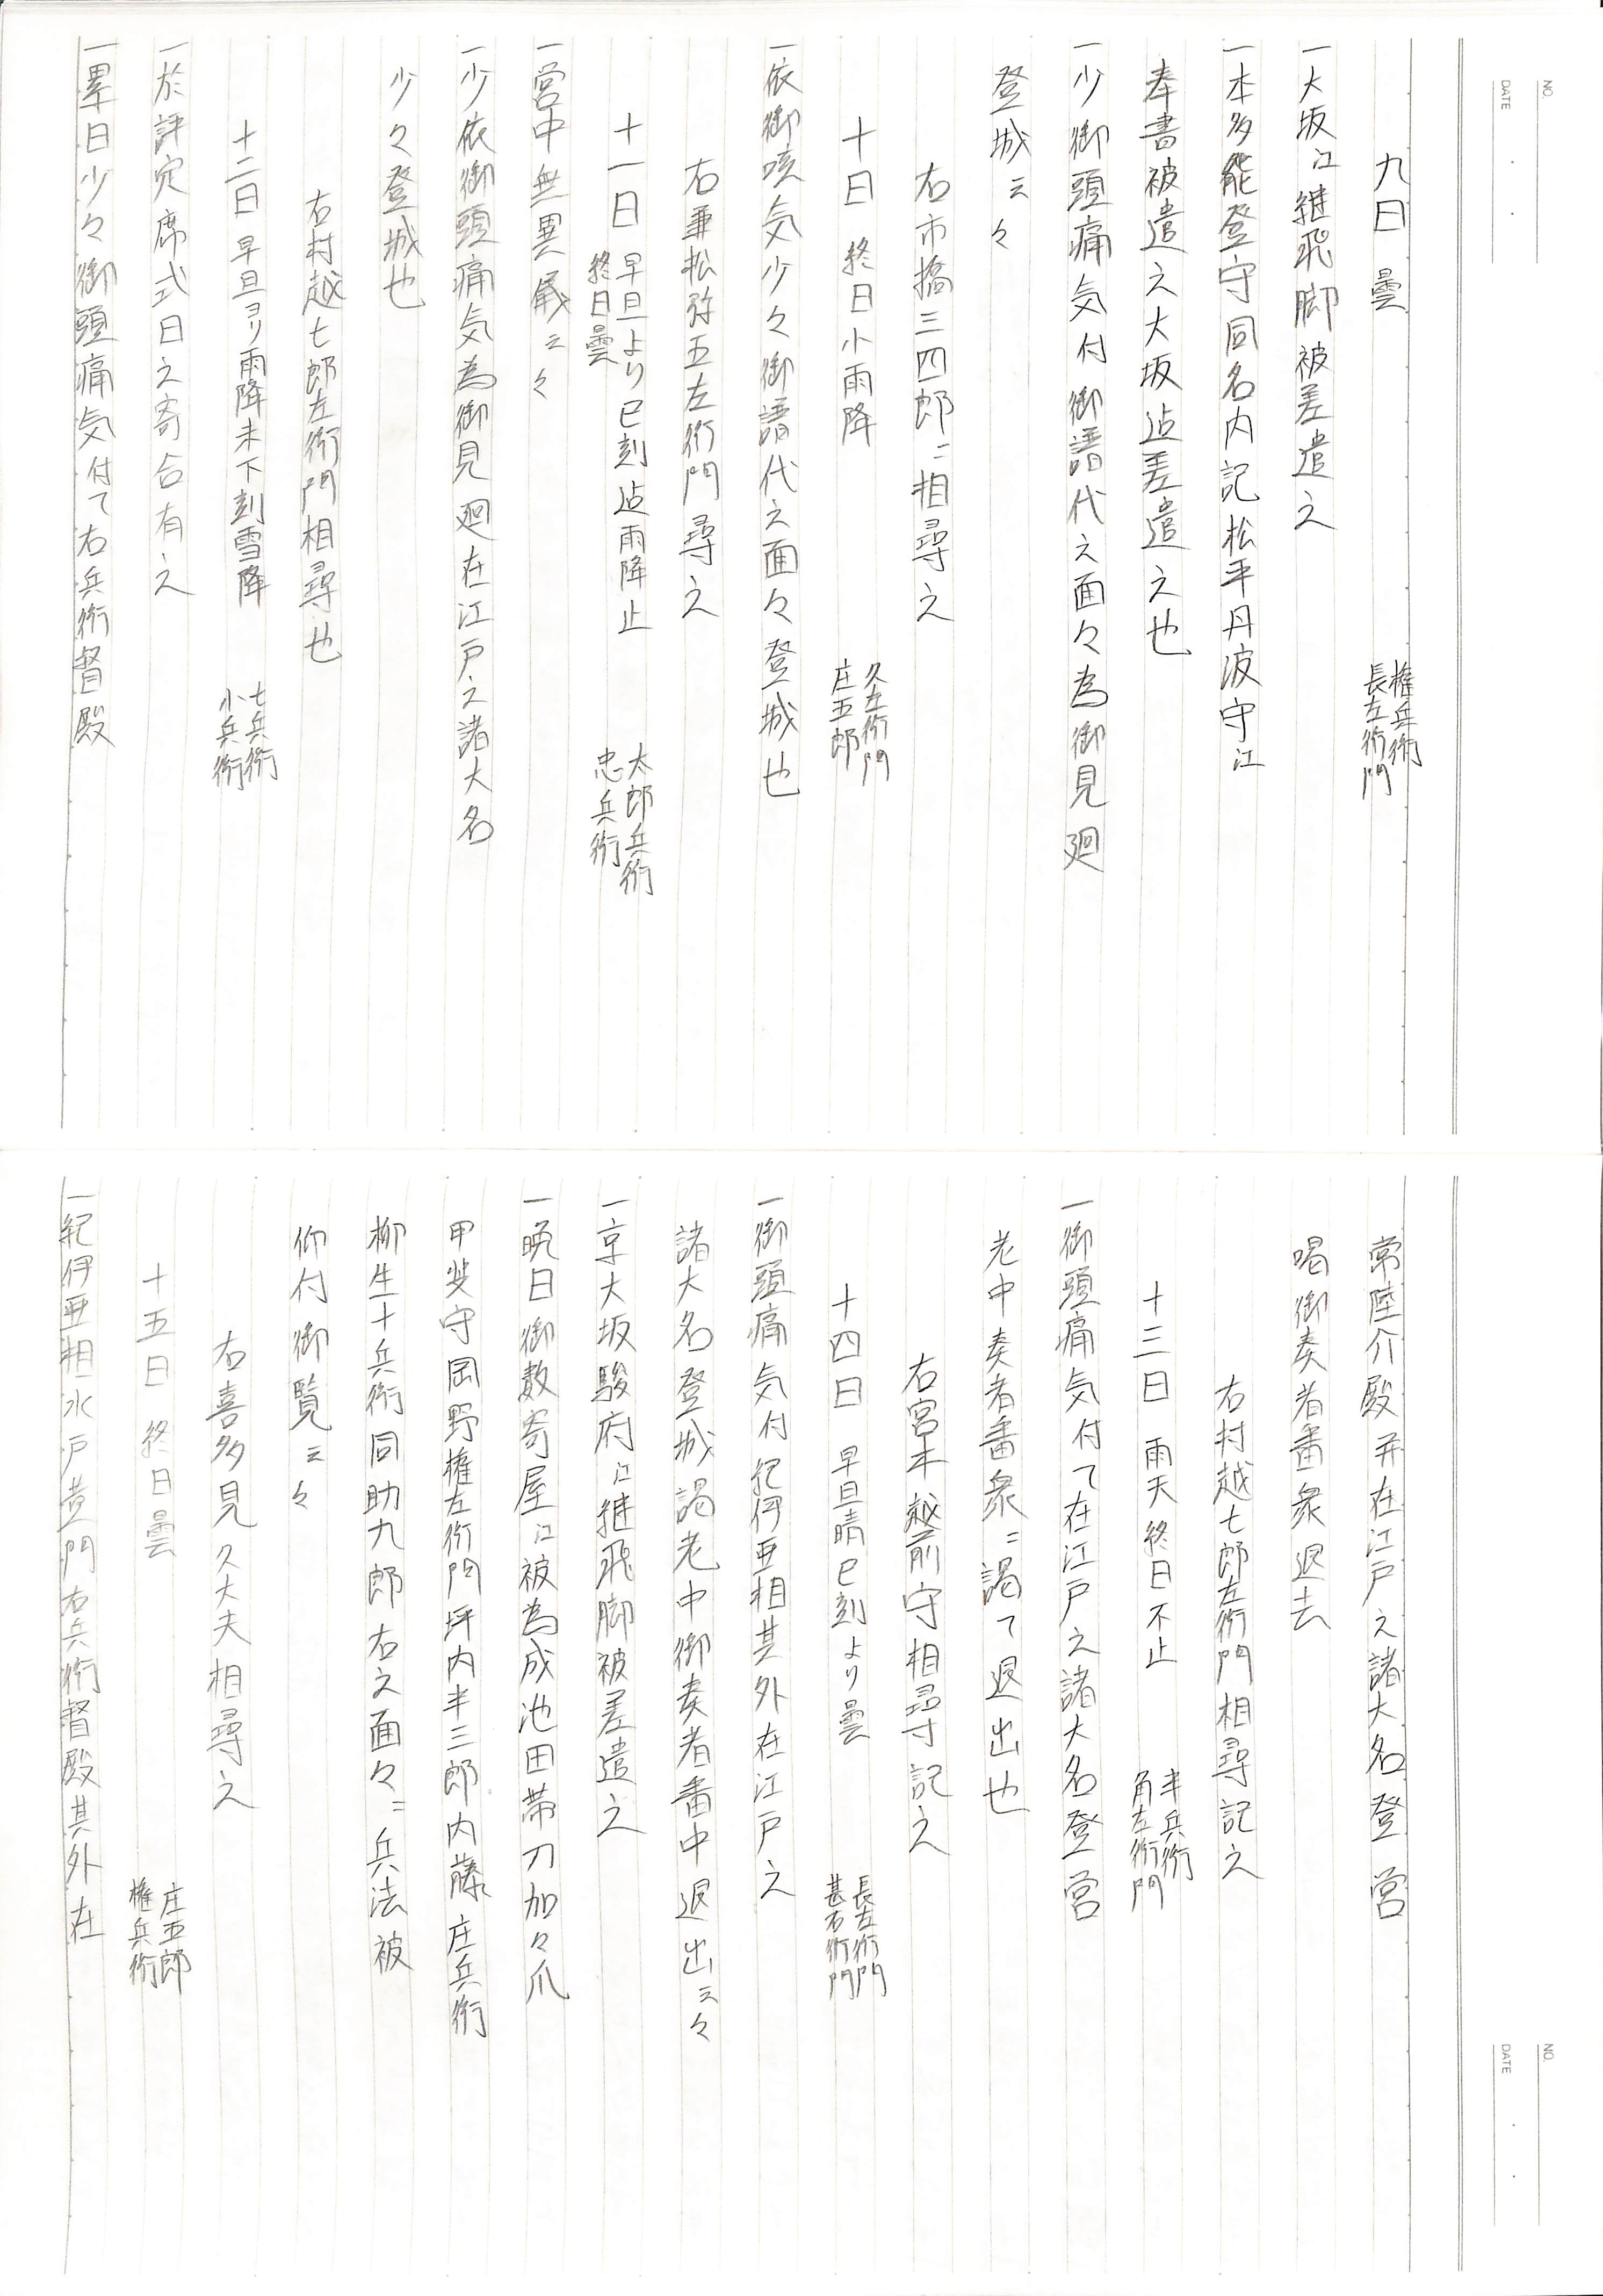 NO.
DATE
九日 曇 権兵衛 長左衛門
一大坂江継飛脚被差遣之
一本多能登守同名内記松平丹波守江
奉書被遣之大坂迄差遣之也
一少御頭痛気付御譜代之面々為御見廻
登城云々
右市橋三四郎ニ相尋之
十日 終日小雨降 久左衛門 庄五郎
一依御咳気少々御譜代之面々登城也
右兼松弥五左衛門尋之
十一日 早旦より巳刻迄雨降止 終日曇 太郎兵衛 忠兵衛
一営中無異儀云々
一少依御頭痛気為御見廻在江戸之諸大名
少々登城也
右村越七郎左衛門相尋也
十二日 早旦ヨリ雨降未下刻雪降 七兵衛 小兵衛
一於評定席式日之寄合有之
一累日少々御頭痛気付て右兵衛督殿
NO.
DATE
常陸介殿并在江戸之諸大名登営
喝御奏者番衆退去
右村越七郎左衛門相尋記之
十三日 雨天終日不止 半兵衛 角左衛門
一御頭痛気付て在江戸之諸大名登営
老中奏者番衆ニ謁て退出也
右宮木越前守相尋記之
十四日 早旦晴巳刻より曇 長左衛門 甚右衛門
一御頭痛気付紀伊亜相其外在江戸之
諸大名登城謁老中御奏者番中退出云々
一京大坂駿府江継飛脚被差遣之
一晩日御数寄屋江被為成池田帯刀加々爪
甲斐守岡野権左衛門坪内半三郎内藤庄兵衛
柳生十兵衛同助九郎右之面々ニ兵法被
仰付御覧云々
右喜多見久大夫相尋之
十五日 終日曇 庄五郎 権兵衛
一紀伊亜相水戸黄門右兵衛督殿其外在